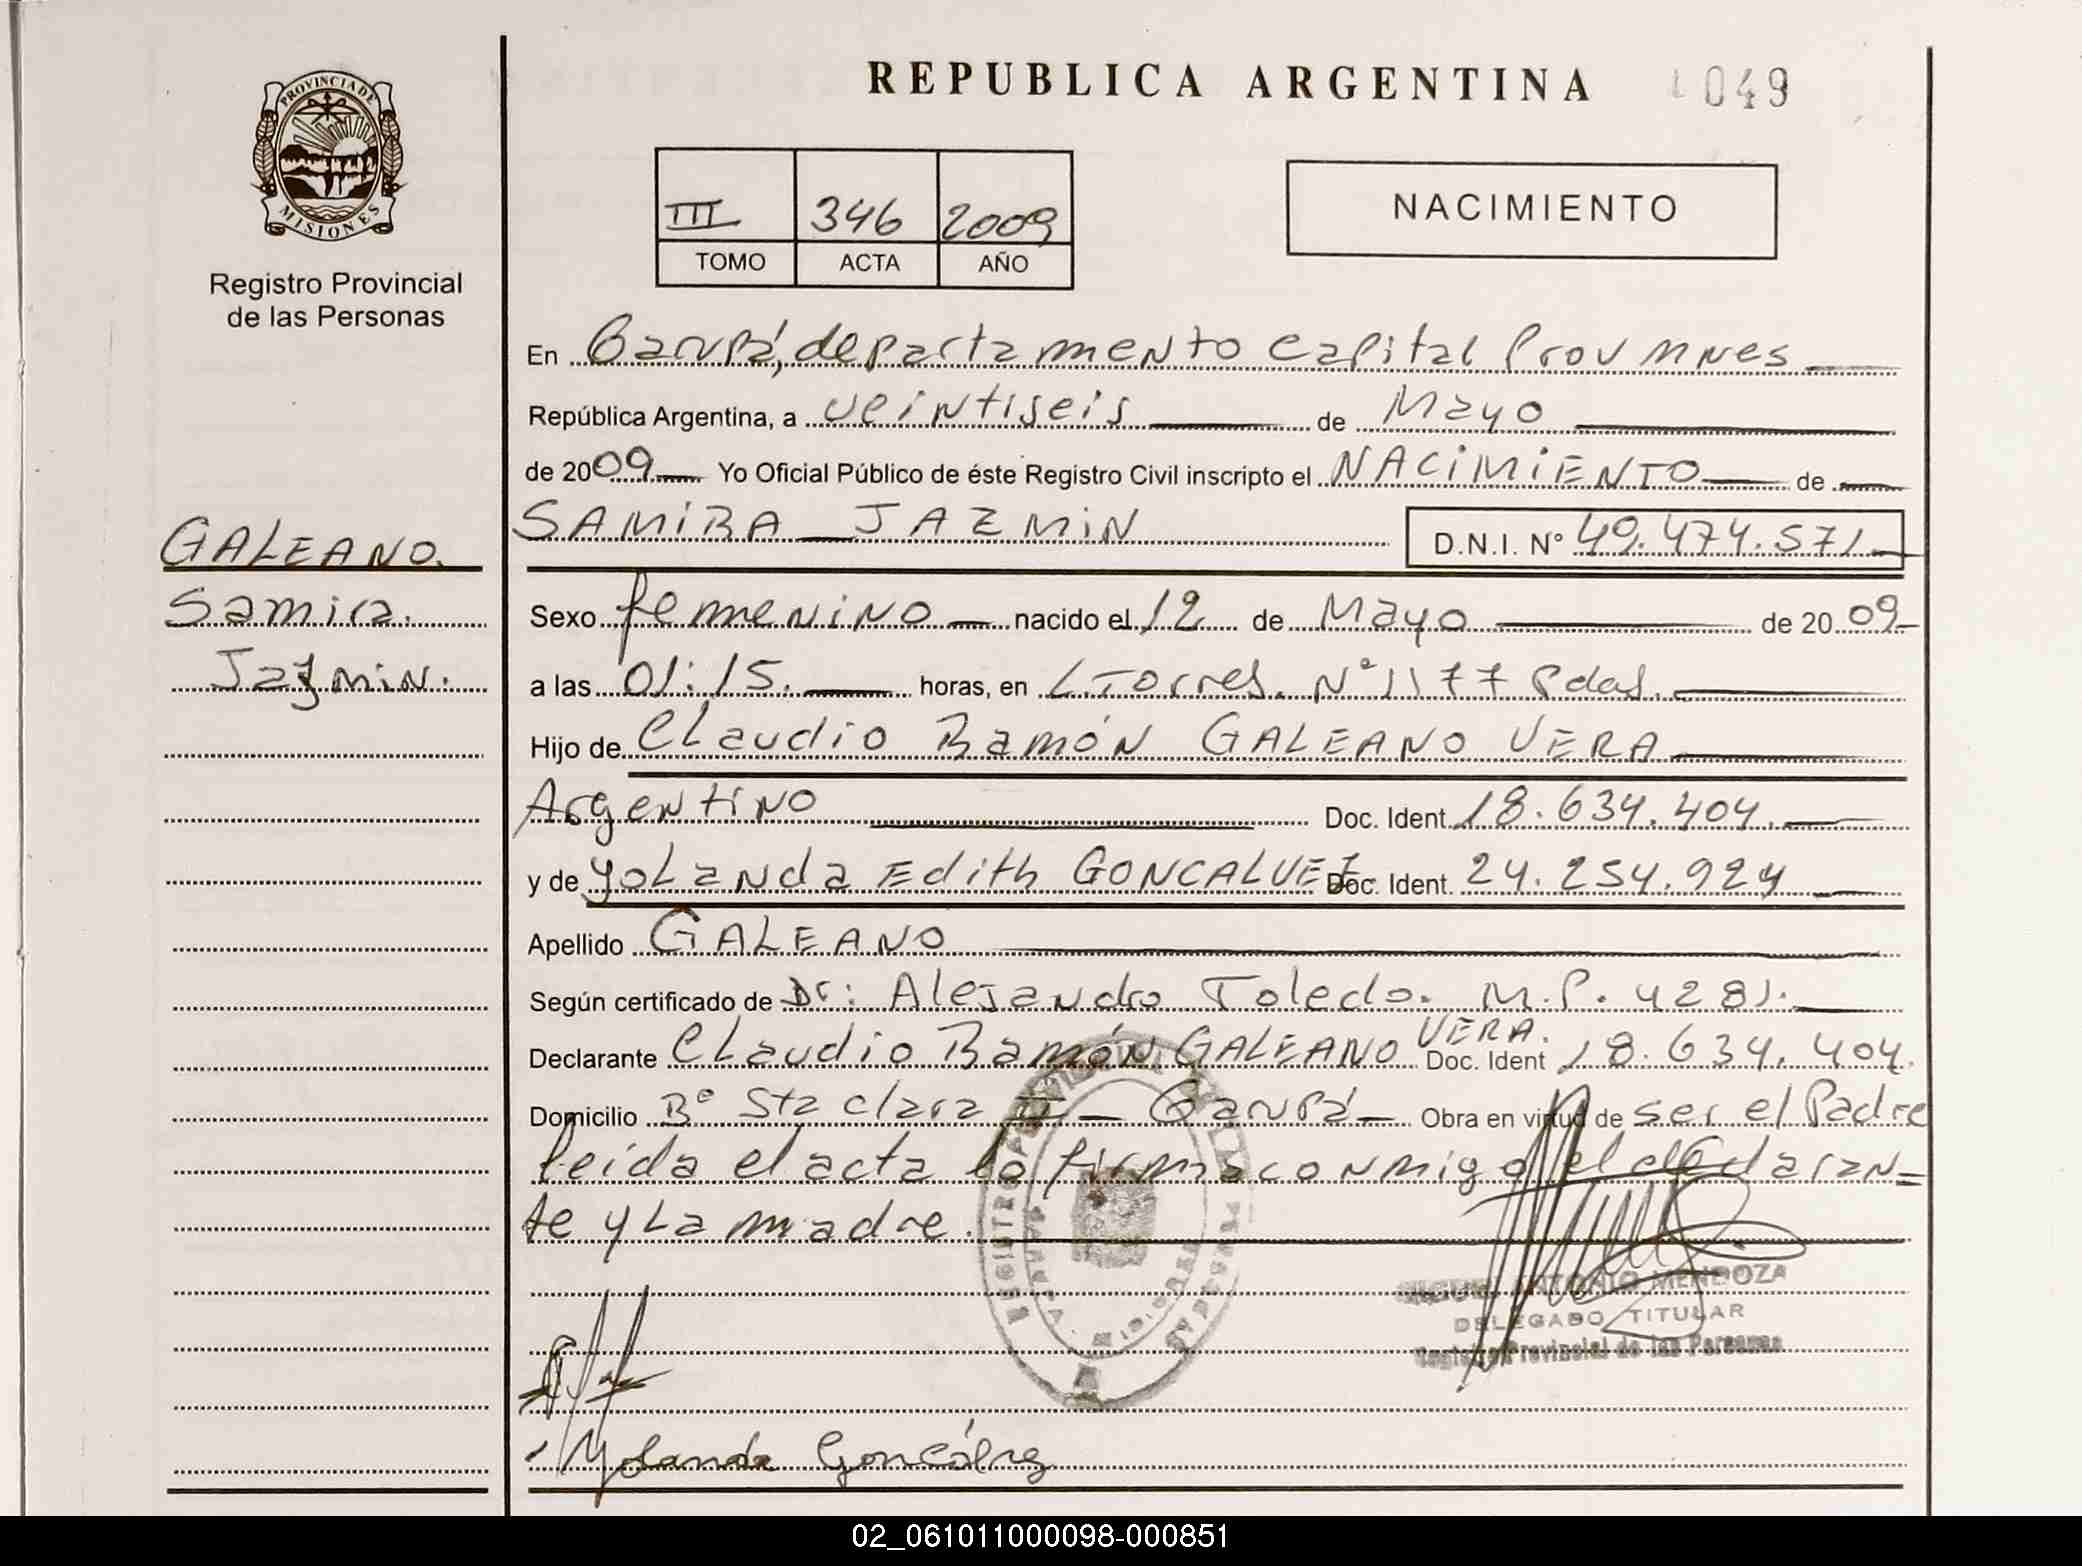 PROVINCIA DE
MISIONES
Registro Provincial
de las Personas
REPUBLICA ARGENTINA 049
III 346 2009
TOMO ACTA AÑO
NACIMIENTO
En Garupá, departamento Capital Prov Mnes
República Argentina, a veintiseis de Mayo
de 2009 Yo Oficial Público de éste Registro Civil inscripto el NACIMIENTO de
SAMIRA JAZMIN D.N.I. Nº 49.474.571
GALEANO.
Samira.
Jazmin.
Sexo femenino nacido el 12 de Mayo de 2009
a las 01:15. horas, en L. Torres. Nº 1177 Pdas.
Hijo de Claudio Ramón GALEANO VERA
Argentino Doc. Ident. 18.634.404.
y de Yolanda Edith GONCALVEZ Doc. Ident. 24.254.924
Apellido GALEANO
Según certificado de Dr: Alejandro Toledo. M.P. 4281.
Declarante Claudio Ramón GALEANO VERA. Doc. Ident 18.634.404.
Domicilio Bº Sta Clara II - Garupá - Obra en virtud de ser el Padre
leida el acta la firma conmigo el declaran-
te y La madre.
ANTONIO MENDOZA
DELEGADO TITULAR
Registro Provincial de las Personas
Yolanda
02_061011000098-000851